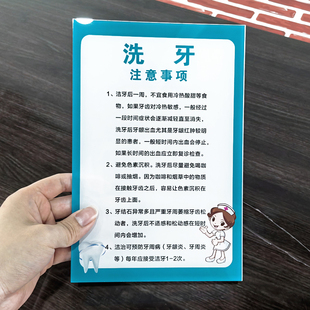 洗牙
注意事项
1、洁牙后一周，不宜食用冷热酸甜等食
物，如果牙齿对冷热敏感，一般经过
一段时间症状会逐渐减轻直至消失，
洗牙后牙龈出血尤其是牙龈红肿较明
显的患者，一般短时间内出血会停止，
如果长时间的出血应立即复诊检查。
2、避免色素沉积。洗牙后尽量避免喝咖
啡或抽烟，因为咖啡和烟草中的物质
在接触牙齿之后，容易让色素沉积在
牙齿上面。
3、牙结石异常多且严重牙周萎缩牙齿松
动者，洗牙后不适感和松动感在短时
间内会增加。
4、洁治可预防牙周病（牙龈炎、牙周炎
等）每年应接受洁牙1~2次。